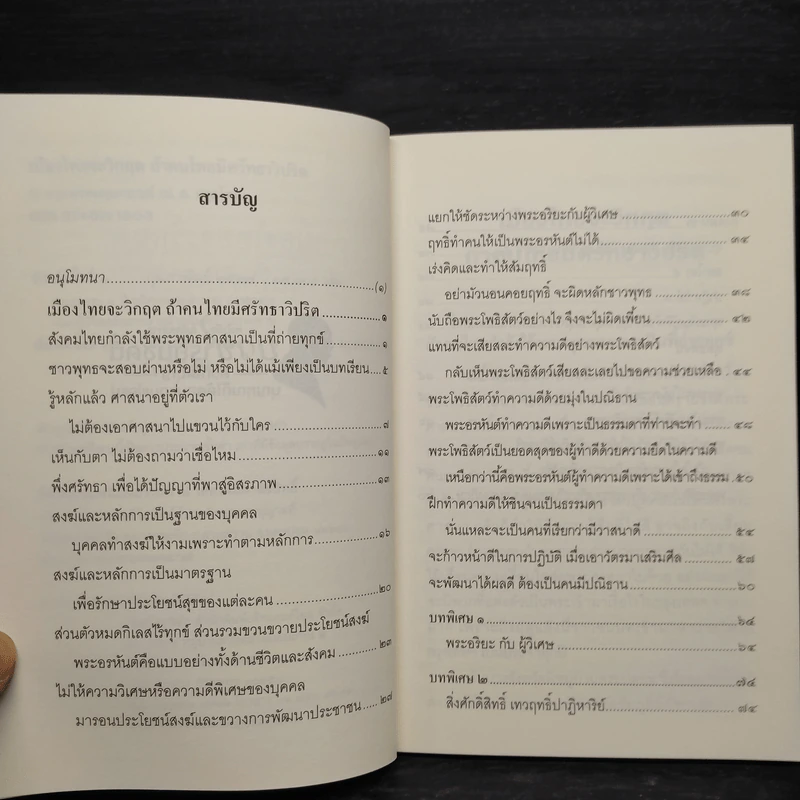 สารบัญ
อนุโมทนา (๑)
เมืองไทยจะวิกฤต ถ้าคนไทยมีศรัทธาวิปริต ๑
สังคมไทยกำลังใช้พระพุทธศาสนาเป็นที่ถ่ายทุกข์ ๑
ชาวพุทธจะสอบผ่านหรือไม่ หรือไม่ได้แม้เพียงเป็นบทเรียน ๕
รู้หลักแล้ว ศาสนาอยู่ที่ตัวเรา
ไม่ต้องเอาศาสนาไปแขวนไว้กับใคร ๘
เห็นกับตา ไม่ต้องถามว่าเชื่อไหม ๑๑
พึ่งศรัทธา เพื่อได้ปัญญาที่พาสู่อิสรภาพ ๑๓
สงฆ์และหลักการเป็นฐานของบุคคล
บุคคลทำสงฆ์ให้งามเพราะทำตามหลักการ ๑๖
สงฆ์และหลักการเป็นมาตรฐาน
เพื่อรักษาประโยชน์สุขของแต่ละคน ๒๐
ส่วนตัวหมดกิเลสไร้ทุกข์ ส่วนรวมขวนขวายประโยชน์สงฆ์
พระอรหันต์คือแบบอย่างทั้งด้านชีวิตและสังคม ๒๓
ไม่ให้ความวิเศษหรือความดีพิเศษของบุคคล
มารอนประโยชน์สงฆ์และขวางการพัฒนาประชาชน ๒๗
แยกให้ชัดระหว่างพระอริยะกับผู้วิเศษ ๓๐
ฤทธิ์ทำคนให้เป็นพระอรหันต์ไม่ได้ ๓๔
เร่งคิดและทำให้สัมฤทธิ์
อย่ามัวนอนคอยฤทธิ์ จะผิดหลักชาวพุทธ ๓๘
นับถือพระโพธิสัตว์อย่างไร จึงจะไม่ผิดเพี้ยน ๔๒
แทนที่จะเสียสละทำความดีอย่างพระโพธิสัตว์
กลับเห็นพระโพธิสัตว์เสียสละเลยไปขอความช่วยเหลือ ๔๔
พระโพธิสัตว์ทำความดีด้วยมุ่งในปณิธาน
พระอรหันต์ทำความดีเพราะเป็นธรรมดาที่ท่านจะทำ ๔๘
พระโพธิสัตว์เป็นยอดสุดของผู้ทำดีด้วยความยึดในความดี
เหนือกว่านี้คือพระอรหันต์ผู้ทำความดีเพราะได้เข้าถึงธรรม ๕๐
ฝึกทำความดีให้ชินจนเป็นธรรมดา
นั่นแหละจะเป็นคนที่เรียกว่ามีวาสนาดี ๕๔
จะก้าวหน้าดีในการปฏิบัติ เมื่อเอาวัตรมาเสริมศีล ๕๗
จะพัฒนาได้ผลดี ต้องเป็นคนมีปณิธาน ๖๐
บทพิเศษ ๑ ๖๔
พระอริยะ กับ ผู้วิเศษ ๖๔
บทพิเศษ ๒ ๗๔
สิ่งศักดิ์สิทธิ์ เทวฤทธิ์ปาฏิหาริย์ ๗๔